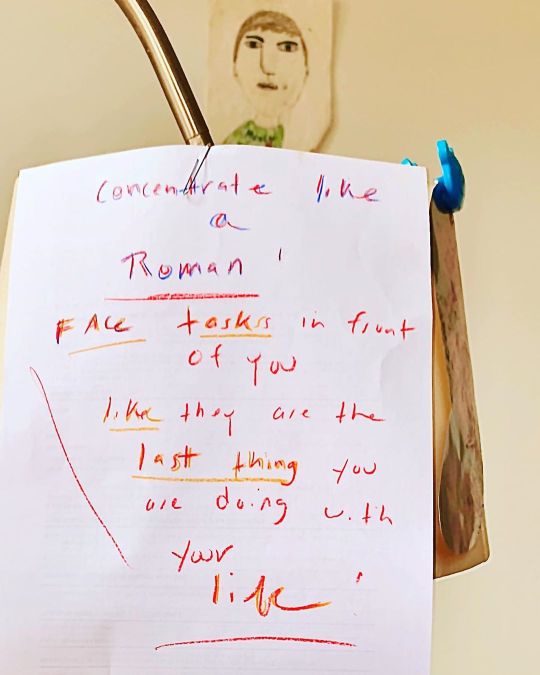 Concentrate like
a
Roman !
FACE tasks in front
of you
like they are the
last thing you
are doing with
your
life !